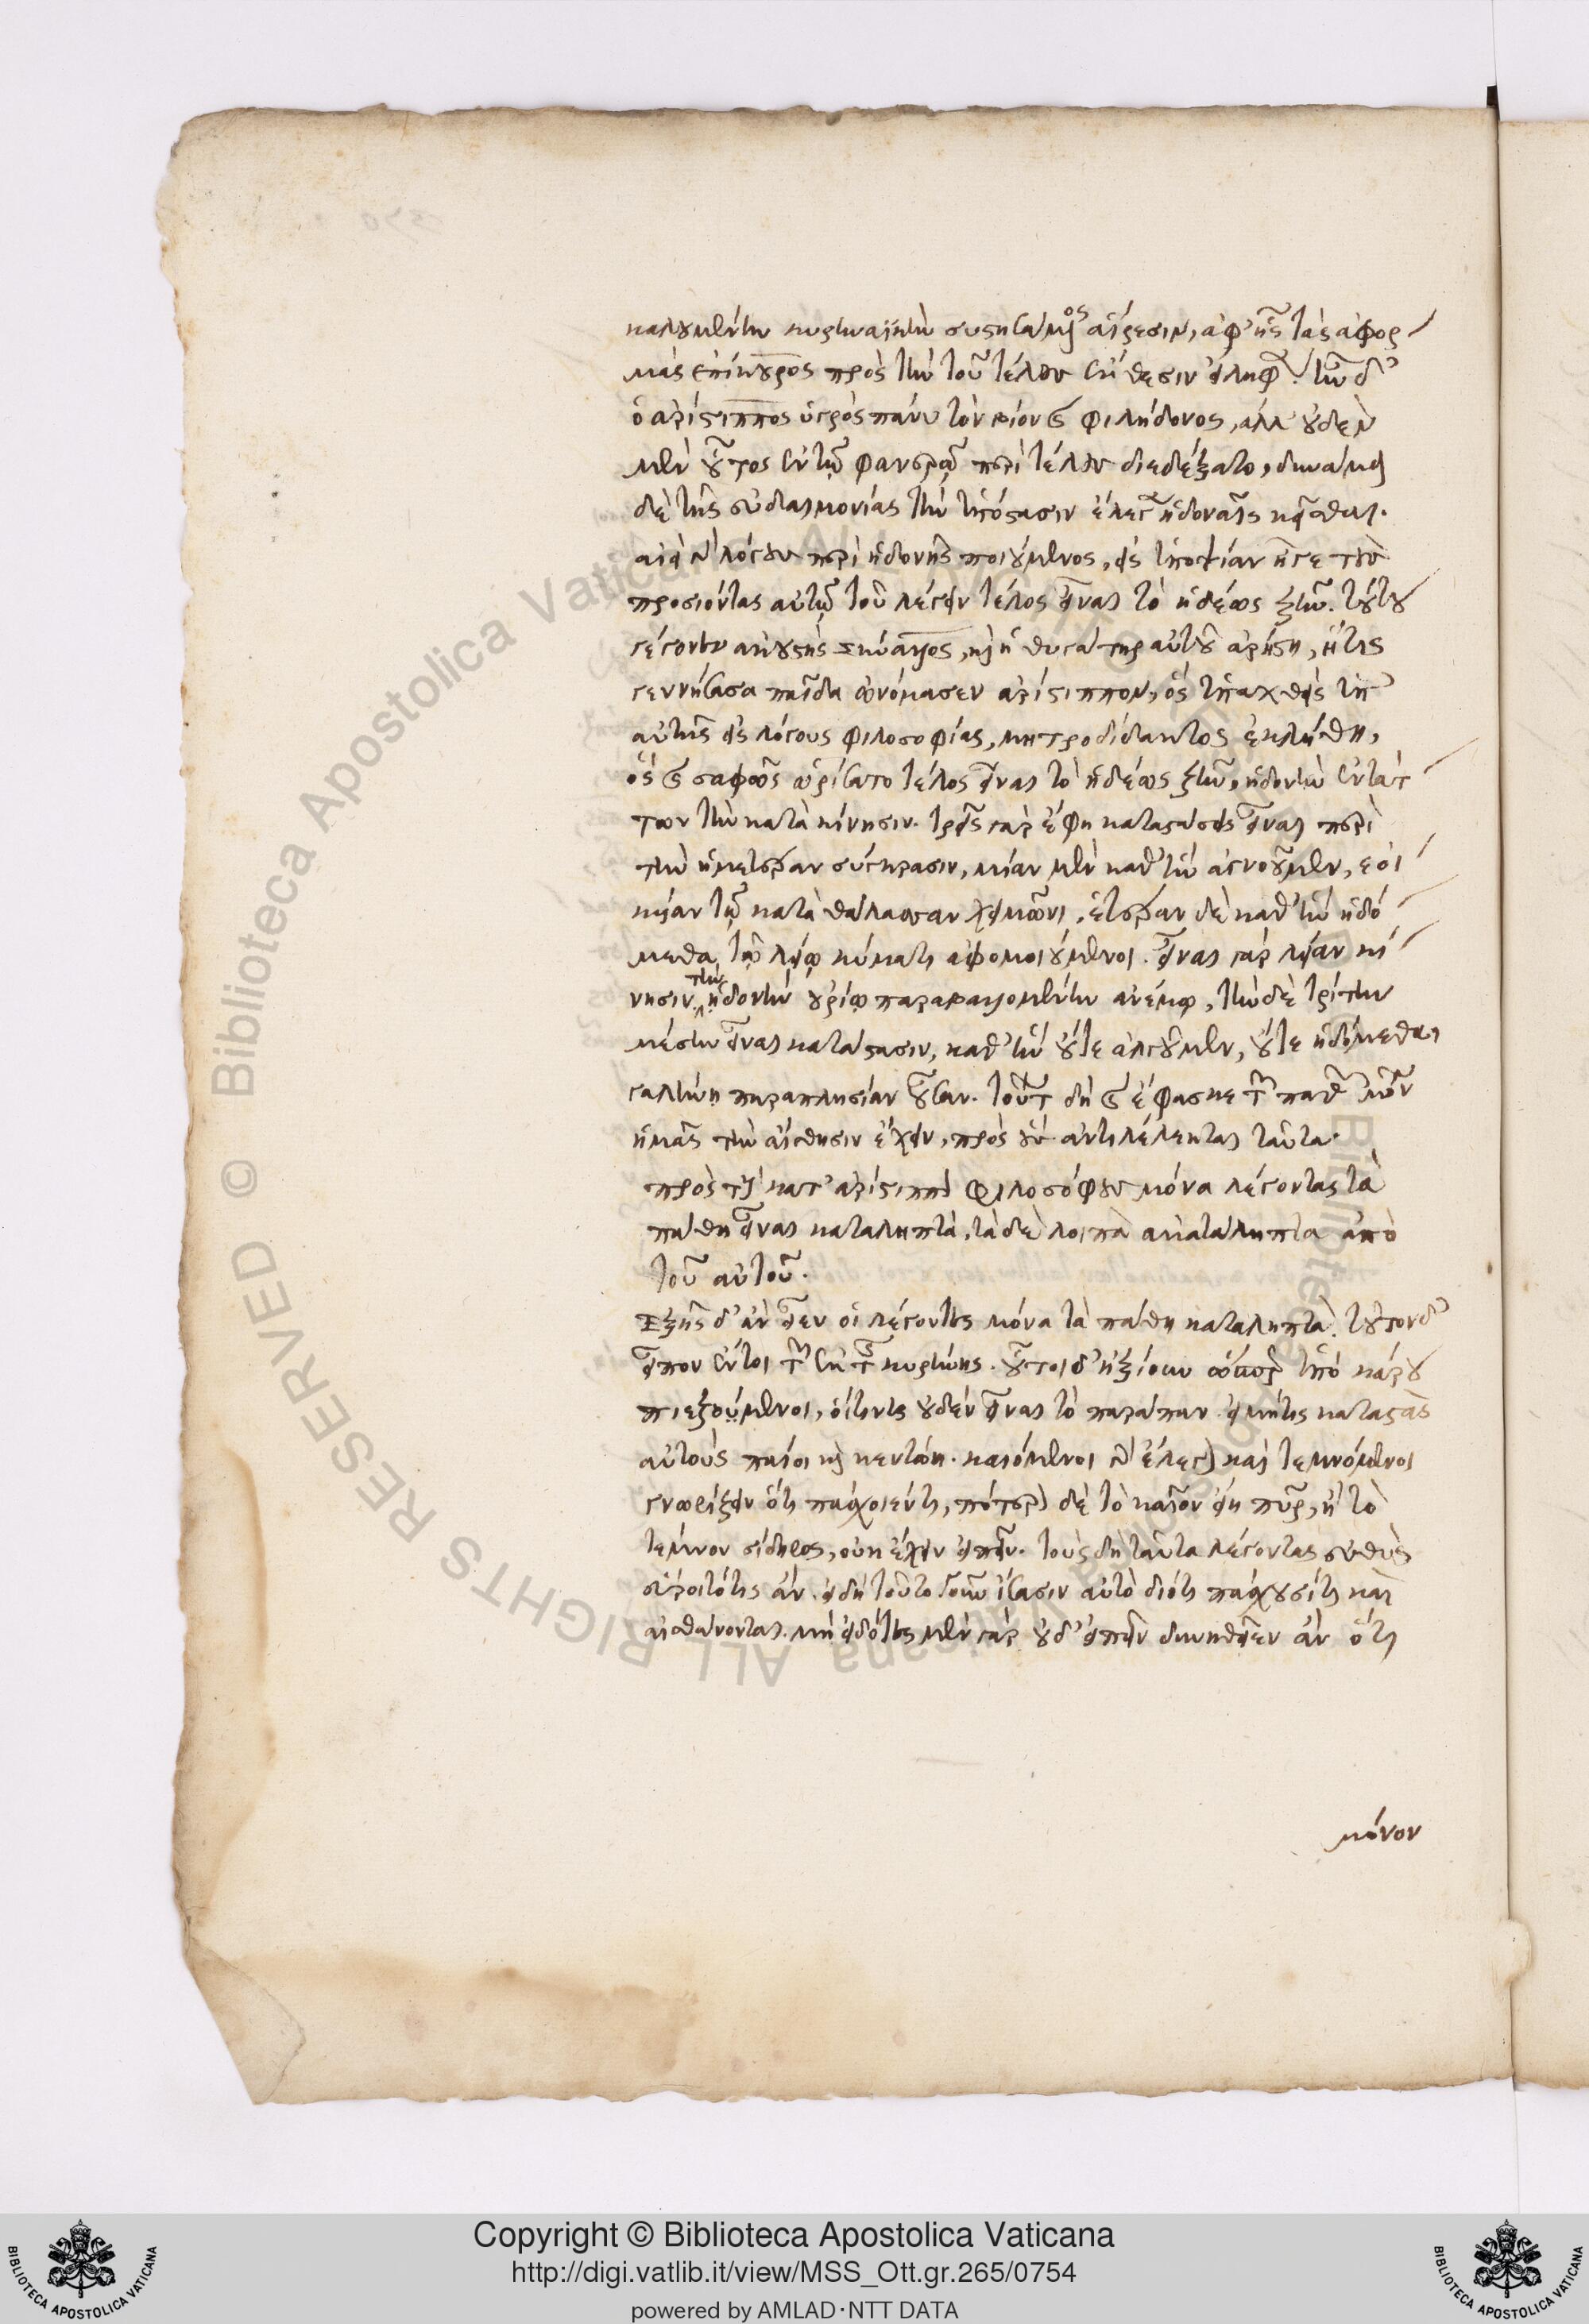 καλουμένην κυρηναϊκὴν συστησάμενος αἵρεσιν, ἀφ' ἧς τὰς ἀφορ
μὰς ἐπίκουρος πρὸς τὴν τοῦ τέλους ἔκθεσιν εἴληφεν. ἦν δ'
ὁ ἀρίστιππος ὑγρὸς πάνυ τὸν βίον καὶ φιλήδονος, ἀλλ' οὐδὲν
μὲν οὗτος ἐν τῷ φανερῷ περὶ τέλους διελέξατο, δυνάμει
δὲ τῆς εὐδαιμονίας τὴν ὑπόστασιν ἔλεγεν ἡδοναῖς κεῖσθαι.
ἀεὶ γὰρ λόγους περὶ ἡδονῆς ποιούμενος, εἰς ὑποψίαν ἦγε τοὺς
προσιόντας αὐτῷ τοῦ λέγειν τέλος εἶναι τὸ ἡδέως ζῆν. τούτου
γέγονεν ἀκουστὴς σύναινος, καὶ ἡ θυγάτηρ αὐτοῦ ἀρήτη, ἥτις
γεννήσασα παῖδα ὠνόμασεν ἀρίστιππον, ὃς ὑπαχθεὶς ὑπ'
αὐτῆς εἰς λόγους φιλοσοφίας, μητροδίδακτος ἐκλήθη,
ὃς καὶ σαφῶς ὡρίσατο τέλος εἶναι τὸ ἡδέως ζῆν, ἡδονὴν ἐντάτ
των τὴν κατὰ κίνησιν. τρεῖς γὰρ ἔφη καταστάσεις εἶναι περὶ
τὴν ἡμετέραν σύγκρασιν, μίαν μὲν καθ' ἣν ἀλγοῦμεν, ἐοι
κυῖαν τῷ κατὰ θάλασσαν χειμῶνι, ἑτέραν δὲ καθ' ἣν ἡδό
μεθα, τῷ λείῳ κύματι ἀφομοιούμενοι. εἶναι γὰρ λείαν κί
νησιν τὴν ἡδονὴν οὐρίῳ παραβαλλομένην ἀνέμῳ, τὴν δὲ τρίτην
μέσην εἶναι κατάστασιν, καθ' ἣν οὔτε ἀλγοῦμεν, οὔτε ἡδόμεθα,
γαλήνῃ παραπλησίαν οὖσαν. τούτων δὴ καὶ ἔφασκε τῶν παθῶν μόνων
ἡμᾶς τὴν αἴσθησιν ἔχειν, πρὸς οὓς ἀντιλέλεκται ταῦτα.
πρὸς τοὺς κατ' ἀρίστιππον φιλοσόφους μόνα λέγοντας τὰ
πάθη εἶναι καταληπτὰ, τὰ δὲ λοιπὰ ἀκατάληπτα ἀπὸ
τοῦ αὐτοῦ.
Ἑξῆς δ' ἂν εἶεν οἱ λέγοντες μόνα τὰ πάθη καταληπτὰ. τοῦτον δ'
εἶπον ἔνιοι τῶν ἐκ τῆς κυρήνης. οὗτοι δ' ἠξίουν ὥσπερ ὑπὸ κάρου
πιεζούμενοι, οἵτινες οὐδὲν εἶναι τὸ παράπαν εἰ μή τις καταστὰς
αὐτοὺς παίοι καὶ κεντῴη. καιόμενοι γὰρ ἔλεγον καὶ τεμνόμενοι
γνωρίζειν ὅτι πάσχοιέν τι, πότερον δὲ τὸ καῖον εἴη πῦρ, ἢ τὸ
τέμνον σίδηρος, οὐκ ἔχειν εἰπεῖν. τοὺς δὴ ταῦτα λέγοντας εὐθὺς
ἔροιτό τις ἂν. εἰ δὴ τοῦτο γοῦν ἴσασιν αὐτὸ διότι πάσχουσί τι καὶ
αἰσθάνονται. μὴ εἰδότες μὲν γὰρ οὐδ' εἰπεῖν δυνηθεῖεν ἂν ὅτι
μόνον
Copyright © Biblioteca Apostolica Vaticana
http://digi.vatlib.it/view/MSS_Ott.gr.265/0754
powered by AMLAD·NTT DATA